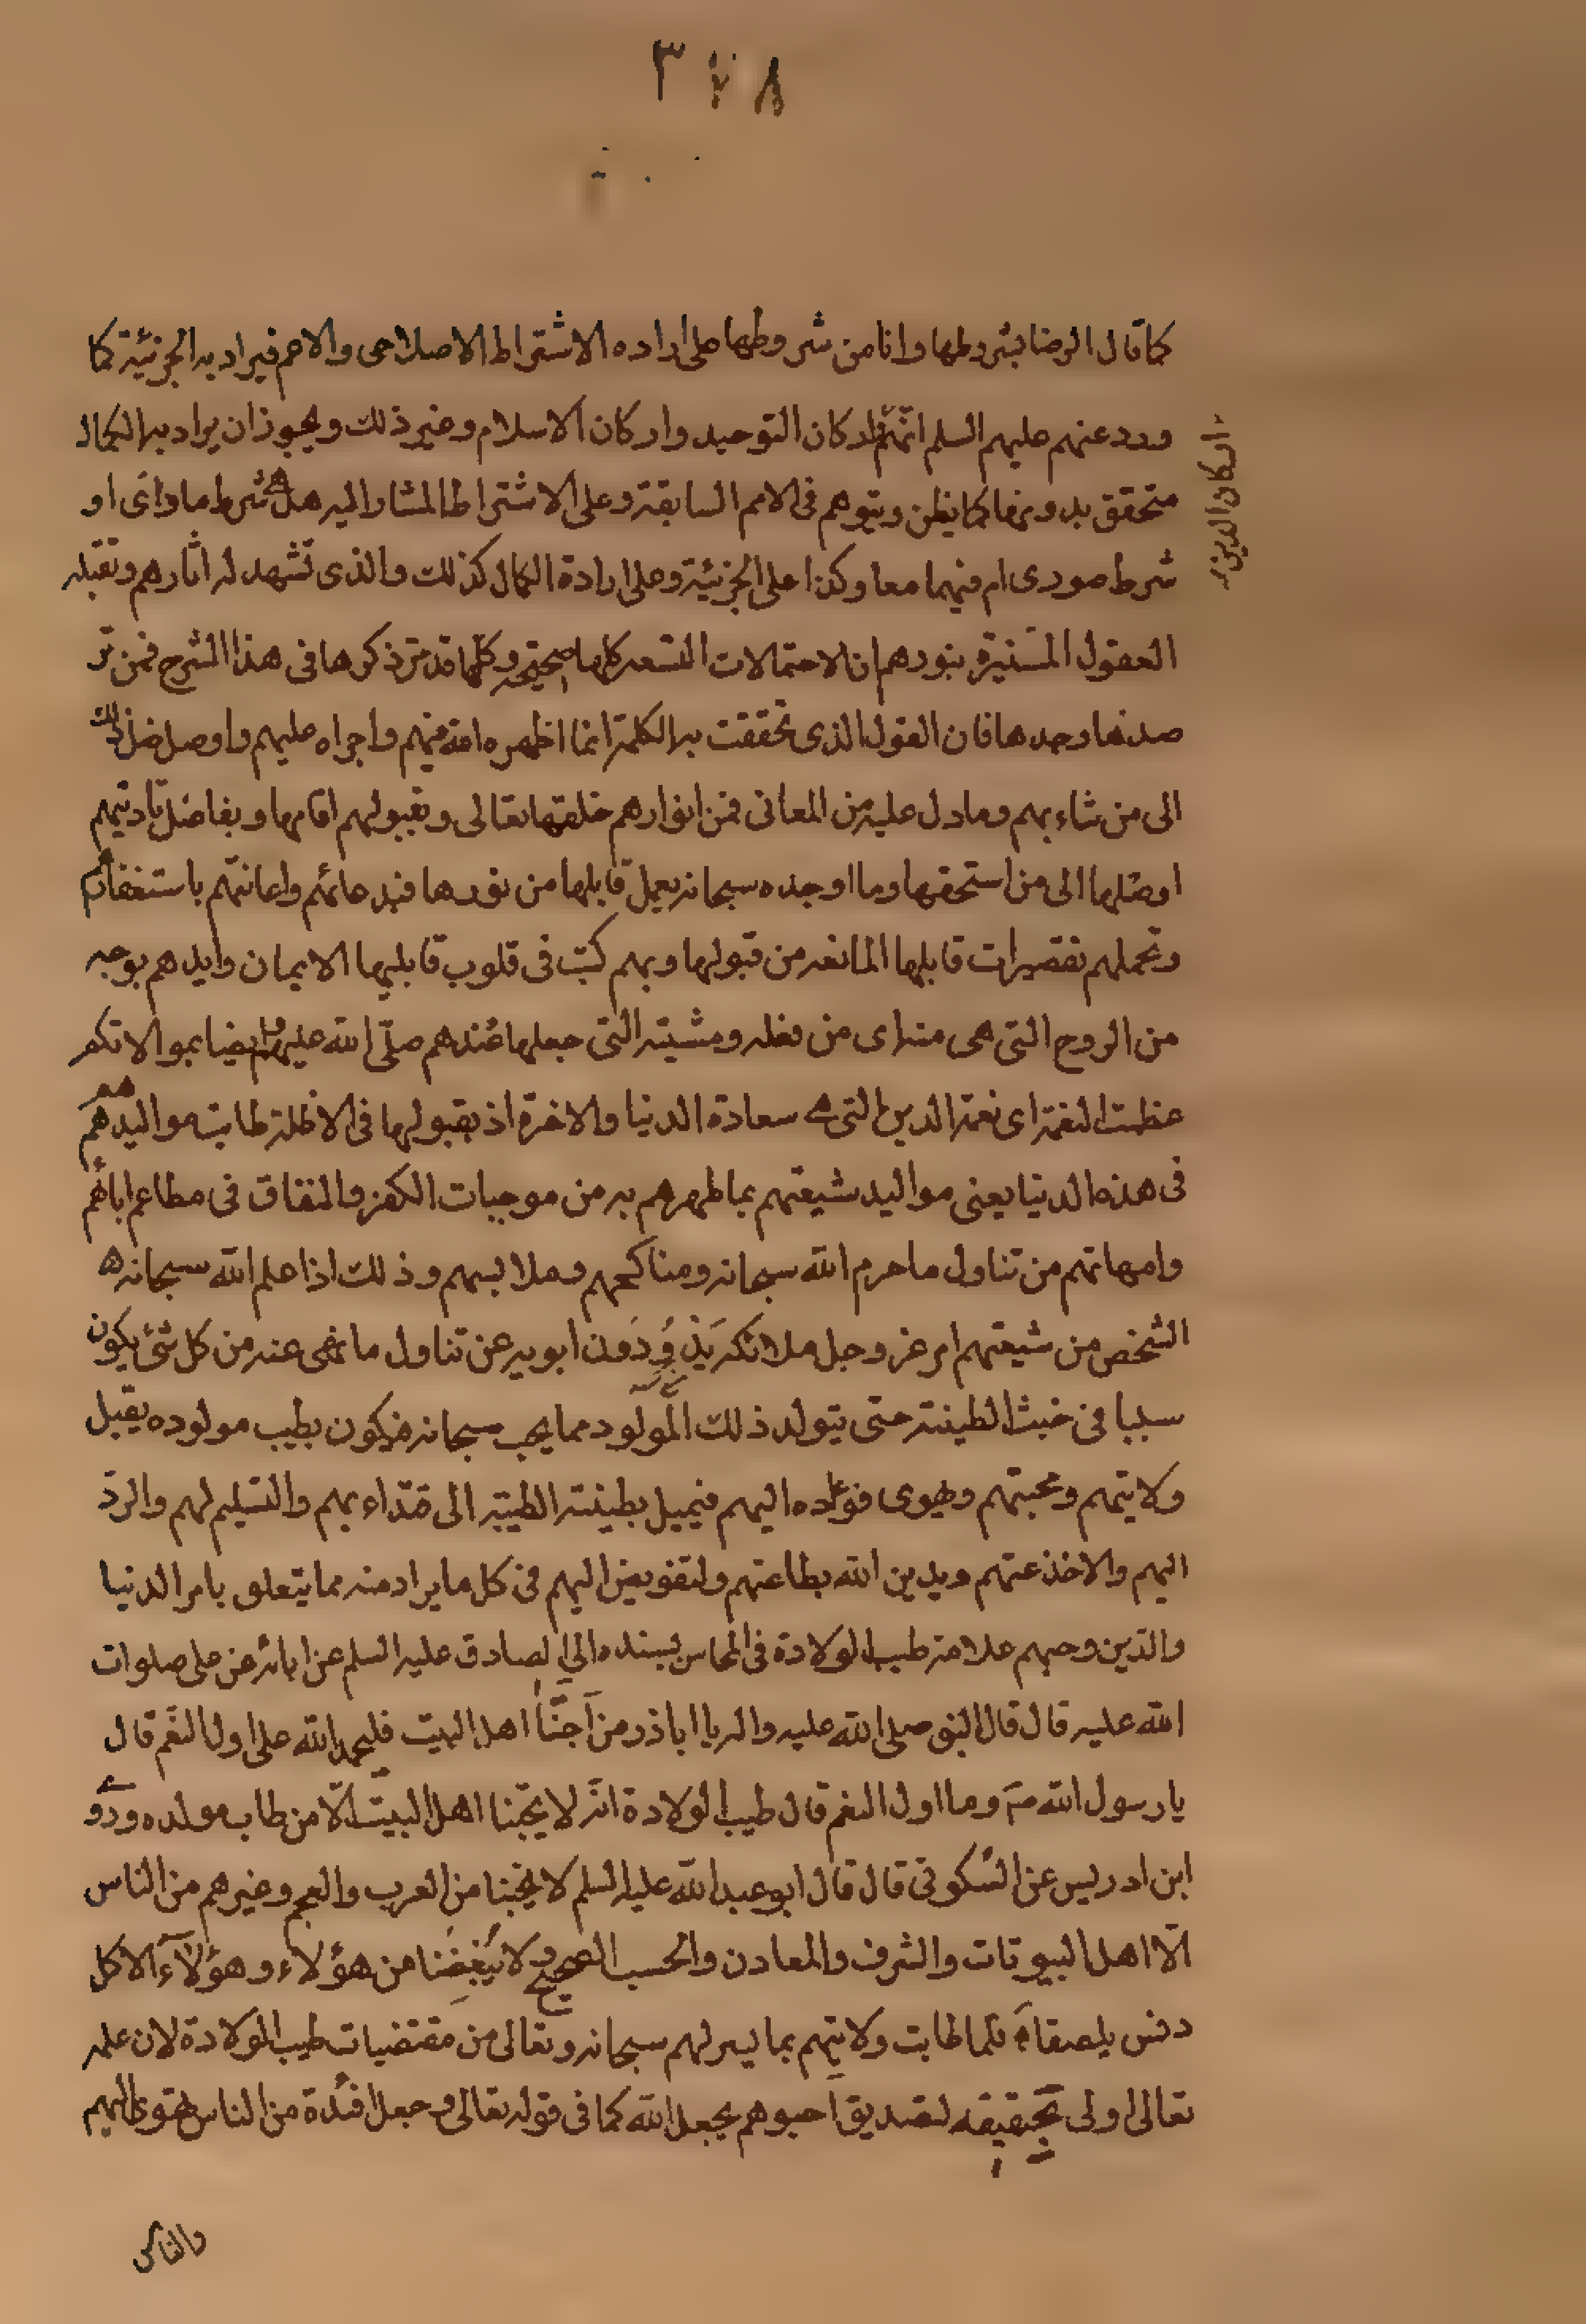 ٣٧٨
كما قال الرضا بشروطها وانا من شروطها على اراده الاشتراط الاصلاحى والاعم فيراد به الجزئية كما
ورد عنهم عليهم السلم انهم اركان التوحيد واركان الاسلام وغير ذلك ويجوز ان يراد به الكمال
اركان الدين
متحقق بدونها كما يظن ويتوهم فى الامم السابقة وعلى الاشتراط المشار اليه هل هم شرط مادى او
شرط صورى ام فيهما معا وكذا على الجزئية وعلى ارادة الكمال كذلك والذى تشهد له اثارهم وتقبله
العقول المستنيرة بنورهم ان الاحتمالات التسعه كلها صحيحة وكلها قد مر ذكرها فى هذا الشرح فمن
صدها وجدها فان القول الذى تحققت به الكلمة انما اظهره الله فيهم واجراه عليهم واوصل فضل ذلك
الى من شاء بهم وما دل عليه من المعانى فمن انوارهم خلقها تعالى وبقبولهم اقامها وبفاضل تاديتهم
اوصلها الى من استحقها وما اوجده سبحانه بعمل قابلها من نورها فبدعائهم واعانتهم باستغفارهم
وتحملهم تقصيرات قابلها المانعه من قبولها وبهم كتب فى قلوب قابليها الايمان وايدهم بوجه
من الروح التى هى منه اى من فعله ومشيته التى جعلها عندهم صلى الله عليهم وايضا بموالاتكم
عظمت النعمة اى نعمة الدين التى هى سعادة الدنيا والاخرة اذ بقبولها فى الاظلة طابت مواليدهم
فى هذه الدنيا يعنى مواليد شيعتهم بما طهرهم به من موجبات الكفر والنفاق فى مطاعم ابائهم
وامهاتهم من تناول ما حرم الله سبحانه ومناكحهم وملابسهم وذلك اذا علم الله سبحانه
الشخص من شيعتهم امر عز وجل ملائكة يذودون ابويه عن تناول ما نهى عنه من كل شئ يكون
سببا فى خبث الطينة حتى يتولد ذلك المولود مما يحب سبحانه فيكون بطيب مولوده يقبل
ولايتهم ومحبتهم وهوى فواده اليهم فيميل بطينته الطيبة الى اقتداء بهم والتسليم لهم والرد
اليهم والاخذ عنهم ويدين الله بطاعتهم ولتفويض اليهم فى كل ما يراد منه مما يتعلق بامر الدنيا
والدين وحبهم علامة طيب الولادة فى المحاسن بسنده الى الصادق عليه السلم عن ابائه عن على صلوات
الله عليه قال قال النبى صلى الله عليه واله يا اباذر من احبنا اهل البيت فليحمد الله على اول النعم قال
يا رسول الله ص وما اول النعم قال طيب الولادة انه لا يحبنا اهل البيت الا من طاب مولده وروى
ابن ادريس عن السكونى قال قال ابو عبد الله عليه السلم لا يحبنا من العرب والعجم وغيرهم من الناس
الا اهل البيوتات والشرف والمعادن والحسب الصحيح ولا يبغضنا من هؤلاء وهؤلاء الا كل
دنس ملصق فلما طابت ولايتهم بما يسر لهم سبحانه وتعالى من مقتضيات طيب الولادة لان علمه
تعالى اولى بحقيقه لتصديق احبوهم بجعل الله كما فى قوله تعالى وجعل افئدة من الناس تهوى اليهم